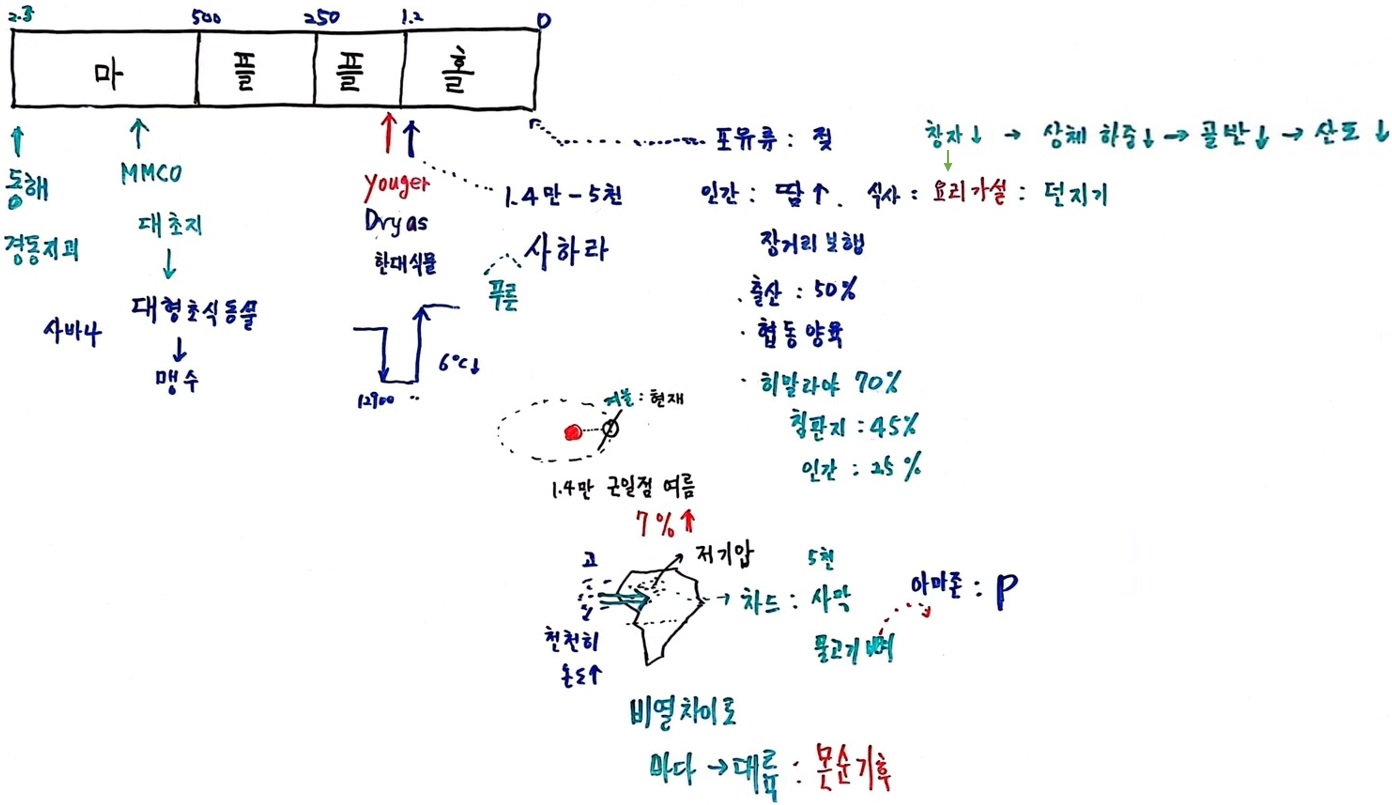 2.3 500 250 1.2 0
마 플 플 홀
동해
경동지괴
MMCO
대초지
↓
대형초식동물
사바나
↓
맹수
Youger
Dryas
한대식물
6°C↓
12900 ··
1.4만-5천
사하라
푸른
포유류 : 젖
창자↓ → 상체 하중↓ → 골반↓ → 산도↓
인간 : 땀↑. 식사 : 요리가설 : 던지기
장거리 보행
· 출산 : 50%
· 협동양육
· 히말라야 70%
침판지 : 45%
인간 : 25%
겨울 : 현재
1.4만 근일점 여름
7%↑
고
저기압
5천
→ 차드 : 사막
아마존 : P
물고기 뼈
천천히
온도↑
비열차이로
바다 → 대륙 : 몬순기후